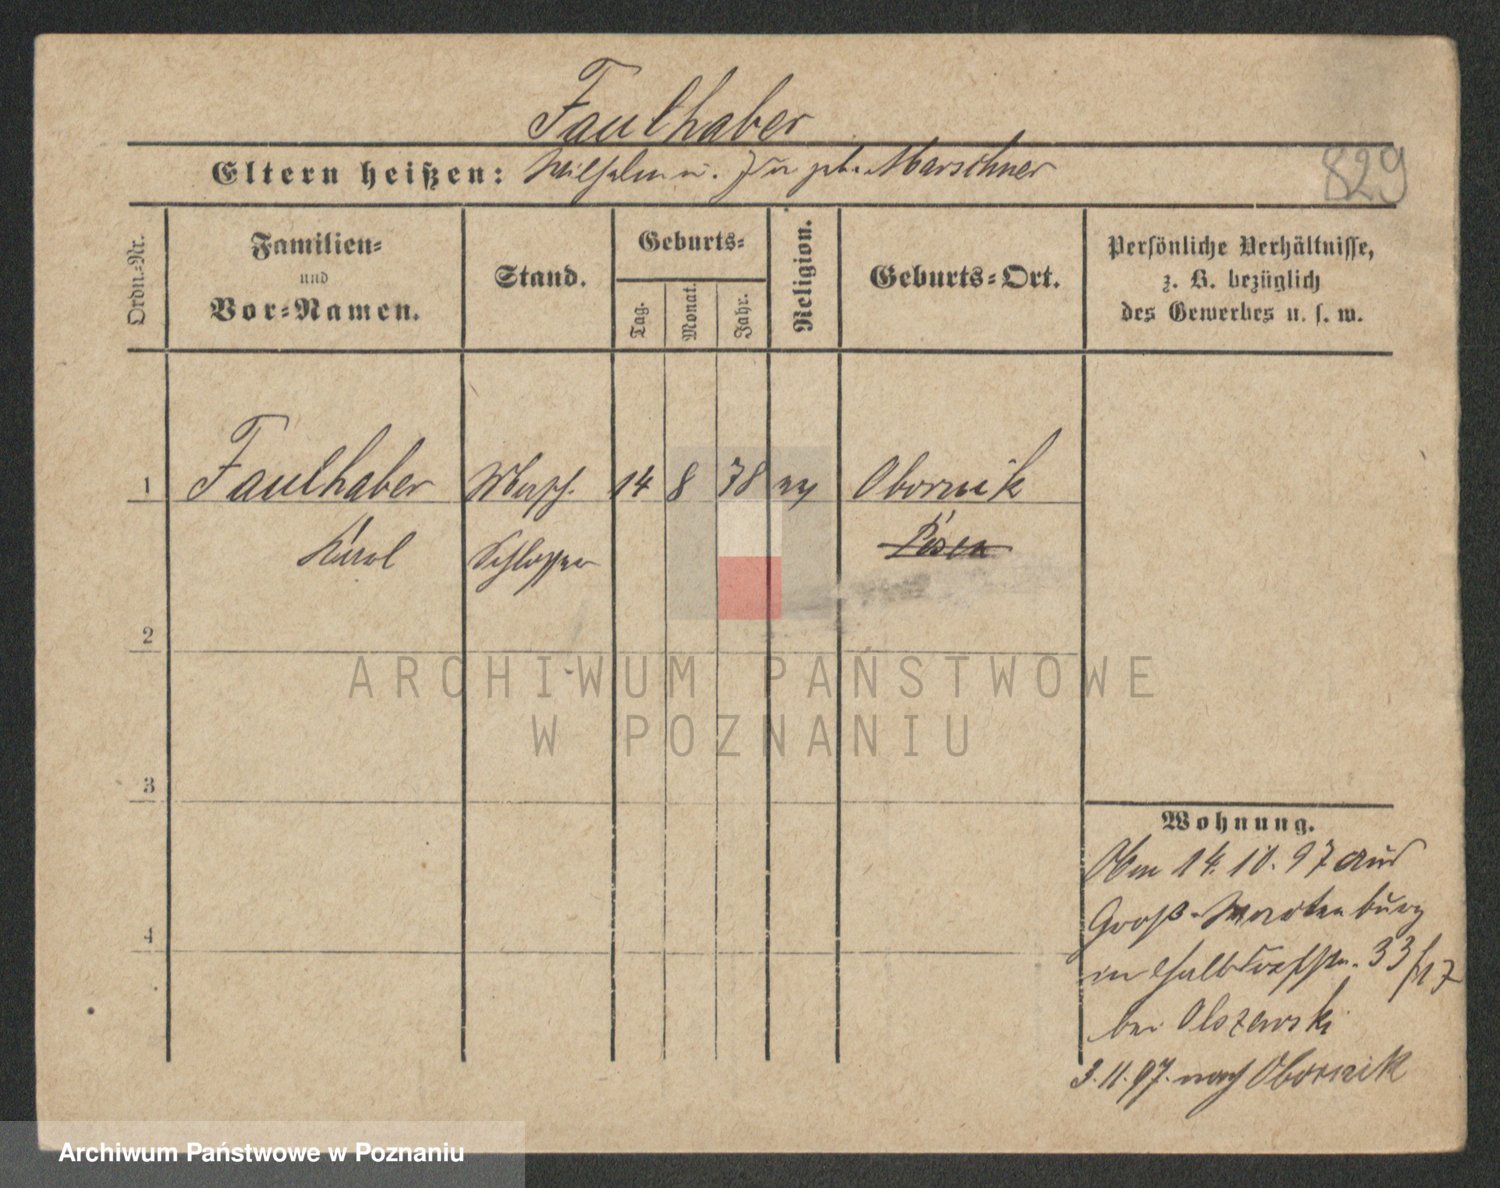 Faulhaber
Eltern heißen: Wilhelm u. geb. Marschner
829
Ordn.-Nr.
Familien-
und
Vor-Namen.
Stand.
Geburts-
Tag.
Monat.
Jahr.
Religion.
Geburts-Ort.
Persönliche Verhältnisse,
z. B. bezüglich
des Gewerbes u. s. w.
1 Faulhaber 14 8 78 Obornik
Karol Schlosser Posen
2
3
4
Wohnung.
14. 10. 97 aus
Groß-Wartenburg
in Halbdorfstr. 33/17
bei Olszewski
3. 11. 97. nach Obornik
ARCHIWUM PAŃSTWOWE
W POZNANIU
Archiwum Państwowe w Poznaniu